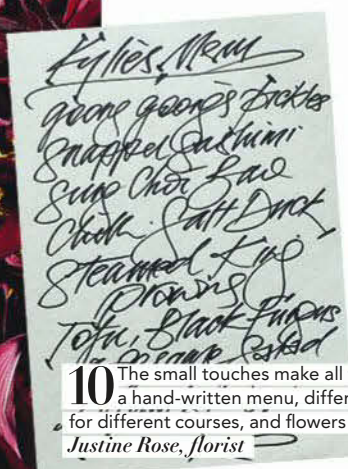 Kylie's Menu
goong goong's Pickles
Snapper Sashimi
Sung Choi Bao
Chilli Salt Duck
Steamed King
Prawns
Tofu, Black Fungus
Sesame Salad
10 The small touches make all
a hand-written menu, differ
for different courses, and flowers
Justine Rose, florist